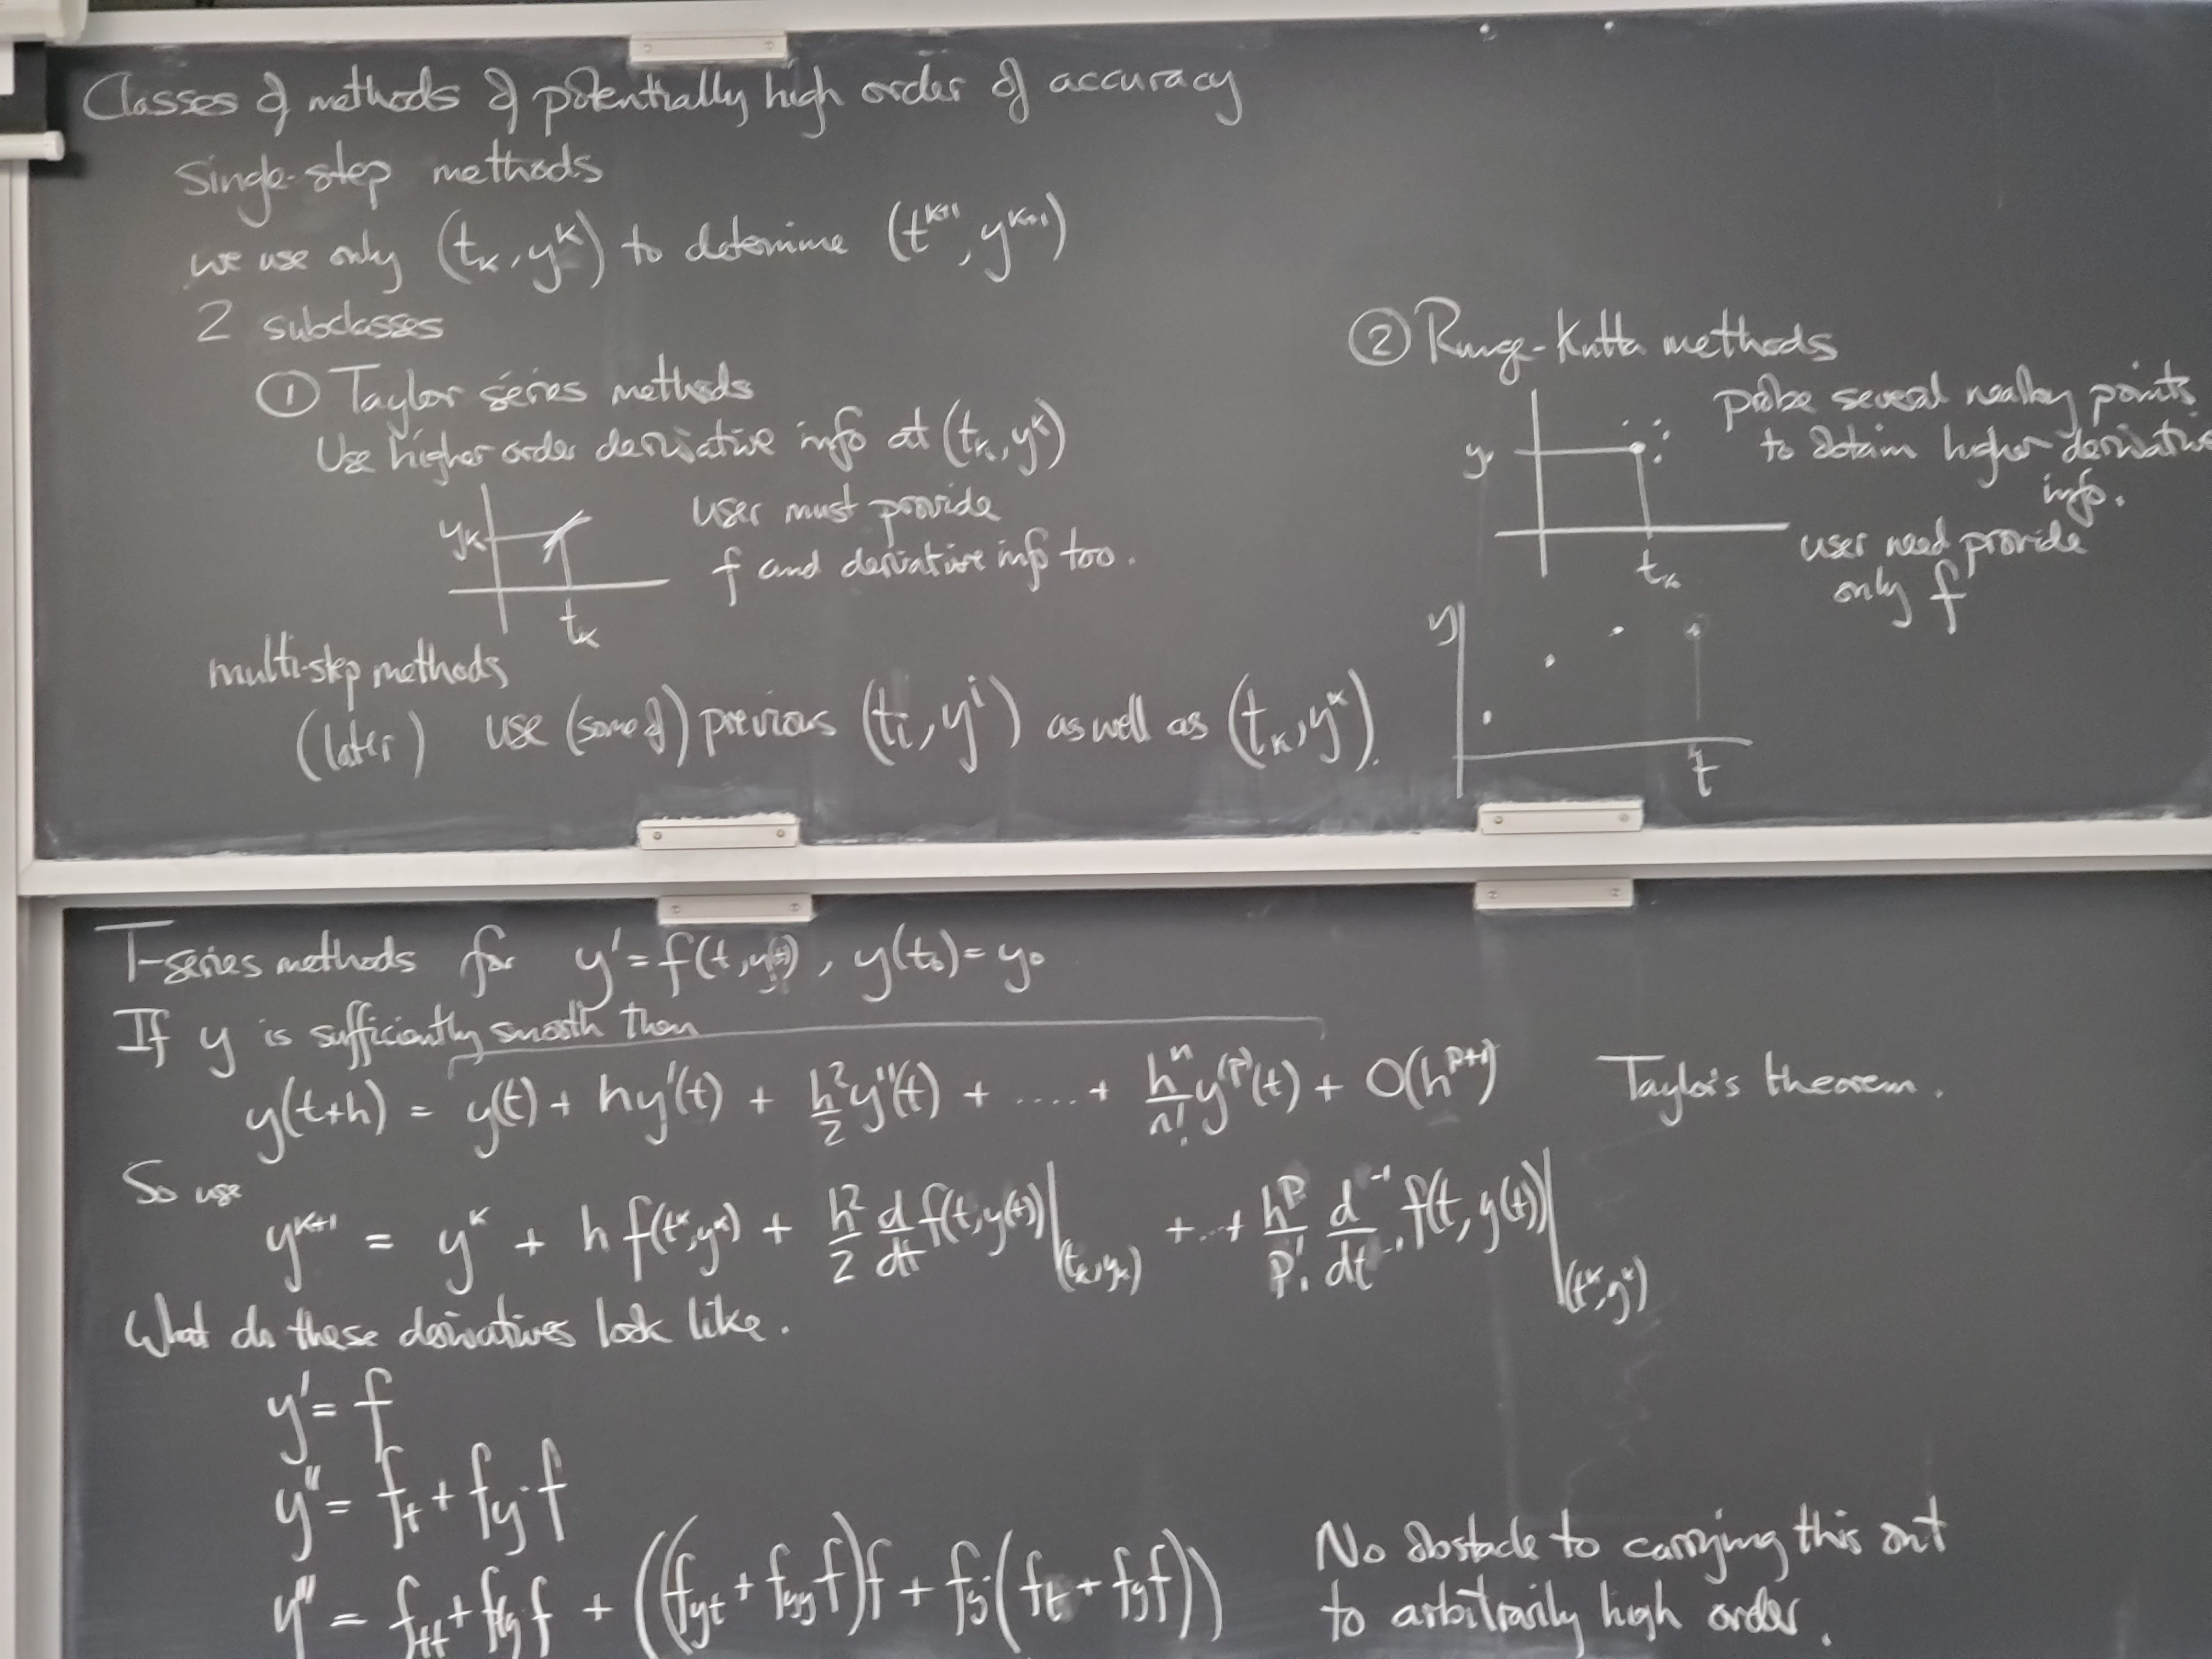 Classes of methods of potentially high order of accuracy
Single-step methods
we use only (t_k, y^k) to determine (t^{k+1}, y^{k+1})
2 subclasses
① Taylor series methods
Use higher order derivative info at (t_k, y^k)
y_k
t_k
user must provide
f and derivative info too.
② Runge-Kutta methods
probe several nearby points
to obtain higher derivative
info.
y_k
t_k
user need provide
only f
multi-step methods
(later) use (some of) previous (t_i, y^i) as well as (t_k, y^k).
y
t
T-series methods for y' = f(t, y(t)), y(t_0) = y_0
If y is sufficiently smooth then
y(t+h) = y(t) + hy'(t) + h^2/2 y''(t) + ..... + h^n/n! y^{(p)}(t) + O(h^{p+1}) Taylor's theorem.
So use
y^{k+1} = y^k + h f(t^k, y^k) + h^2/2 d/dt f(t, y(t))|_{(t_k, y_k)} + ... + h^p/p! d^{-1}/dt^{-1} f(t, y(t))|_{(t^k, y^k)}
What do these derivatives look like.
y' = f
y'' = f_t + f_y · f
y''' = f_{tt} + f_{ty} f + ((f_{yt} + f_{yy} f) f + f_y · (f_t + f_y f))
No obstacle to carrying this out
to arbitrarily high order.